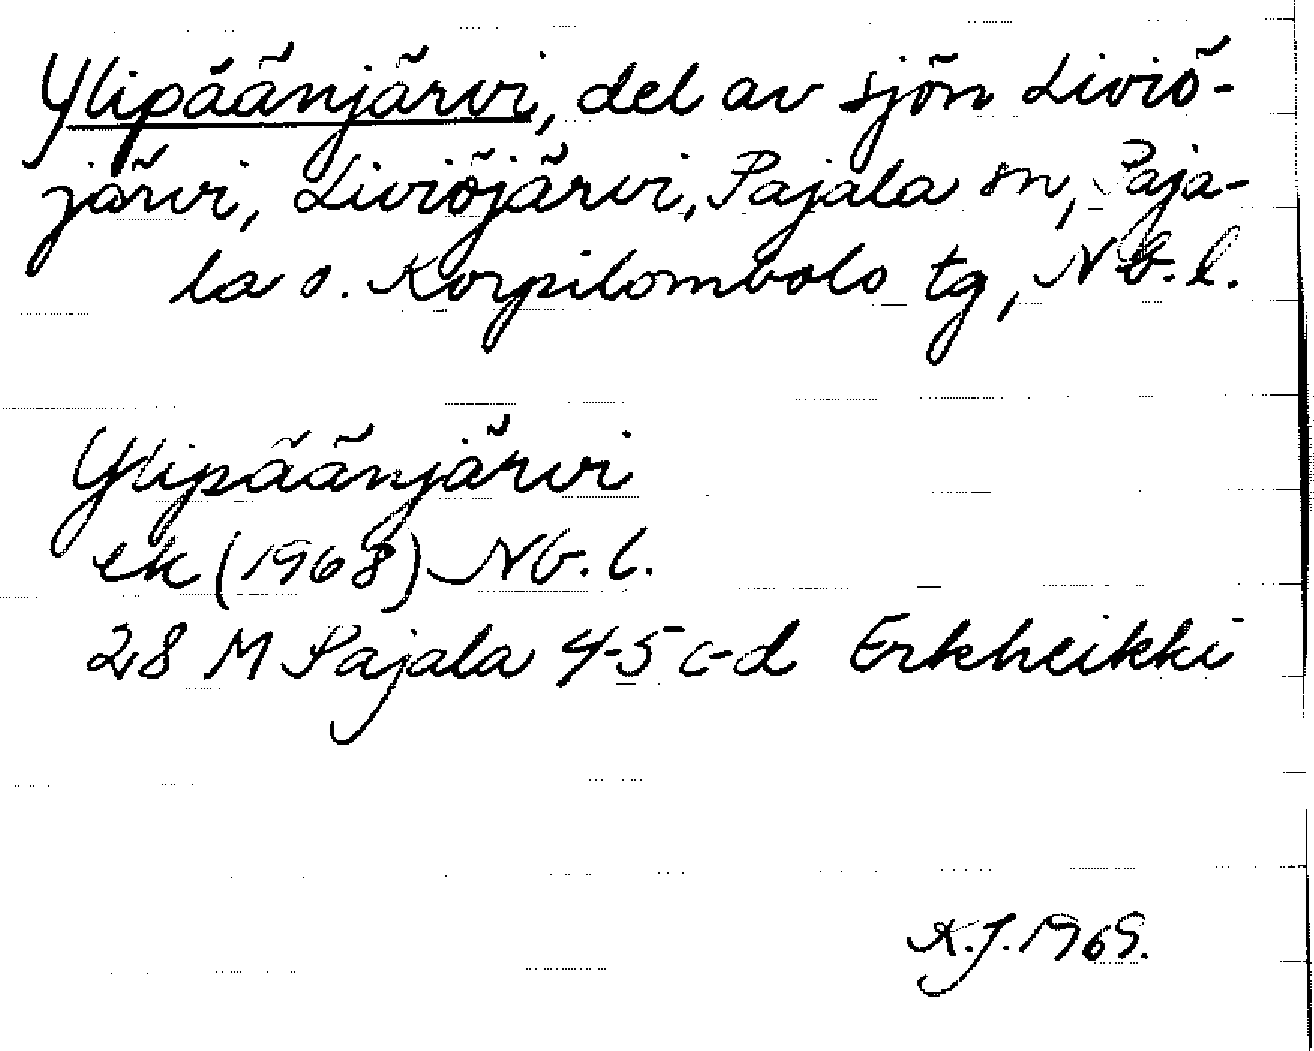 Ylipäänjärvi, del av sjön Liviö-
järvi, Liviöjärvi, Pajala sn, Paja-
la o. Korpilombolo tg, Nb. l.
Ylipäänjärvi
ek (1968) Nb. l.
28 M Pajala 4-5 c-d Erkheikki
K.J. 1969.